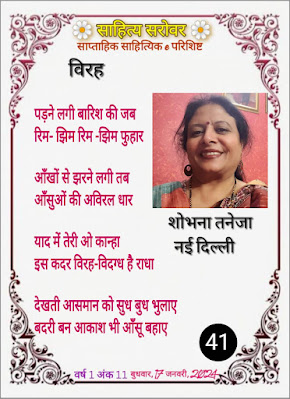 साहित्य सरोवर
साप्ताहिक साहित्यिक e परिशिष्ट
विरह
पड़ने लगी बारिश की जब
रिम- झिम रिम -झिम फुहार
आँखों से झरने लगी तब
आँसुओं की अविरल धार
याद में तेरी ओ कान्हा
इस कदर विरह-विदग्ध है राधा
देखती आसमान को सुध बुध भुलाए
बदरी बन आकाश भी आँसू बहाए
शोभना तनेजा
नई दिल्ली
41
वर्ष 1 अंक 11 बुधवार, 17 जनवरी, 2024